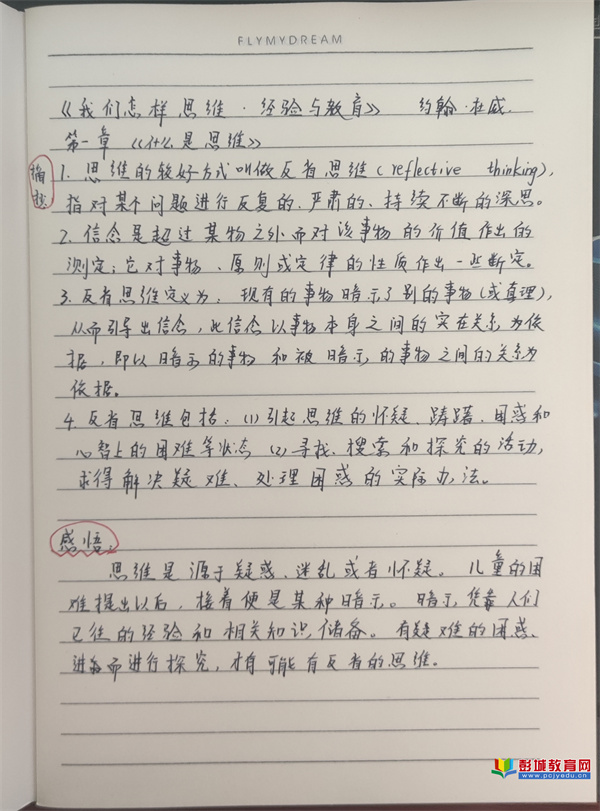 FLYMYDREAM
《我们怎样思维·经验与教育》 约翰·杜威
第一章 《什么是思维》
摘抄
1. 思维的较好方式叫做反省思维(reflective thinking),
指对某个问题进行反复的、严肃的、持续不断的深思。
2. 信念是超过某物之外而对该事物的价值作出的
测定；它对事物、原则或定律的性质作出一些断定。
3. 反省思维定义为：现有的事物暗示了别的事物(或真理),
从而引导出信念，此信念以事物本身之间的实在关系为依
据，即以暗示的事物和被暗示的事物之间的关系为
依据。
4. 反省思维包括：(1)引起思维的怀疑、踌躇、困惑和
心智上的困难等状态 (2)寻找、搜索和探究的活动，
求得解决疑难、处理困惑的实际办法。
感悟：
思维是源于疑惑、迷乱或者怀疑。儿童的困
难提出以后，接着便是某种暗示。暗示凭靠人们
已往的经验和相关知识储备。有疑难的困惑、
进而进行探究，才有可能有反省的思维。
彭城教育网
www.pcjyedu.cn